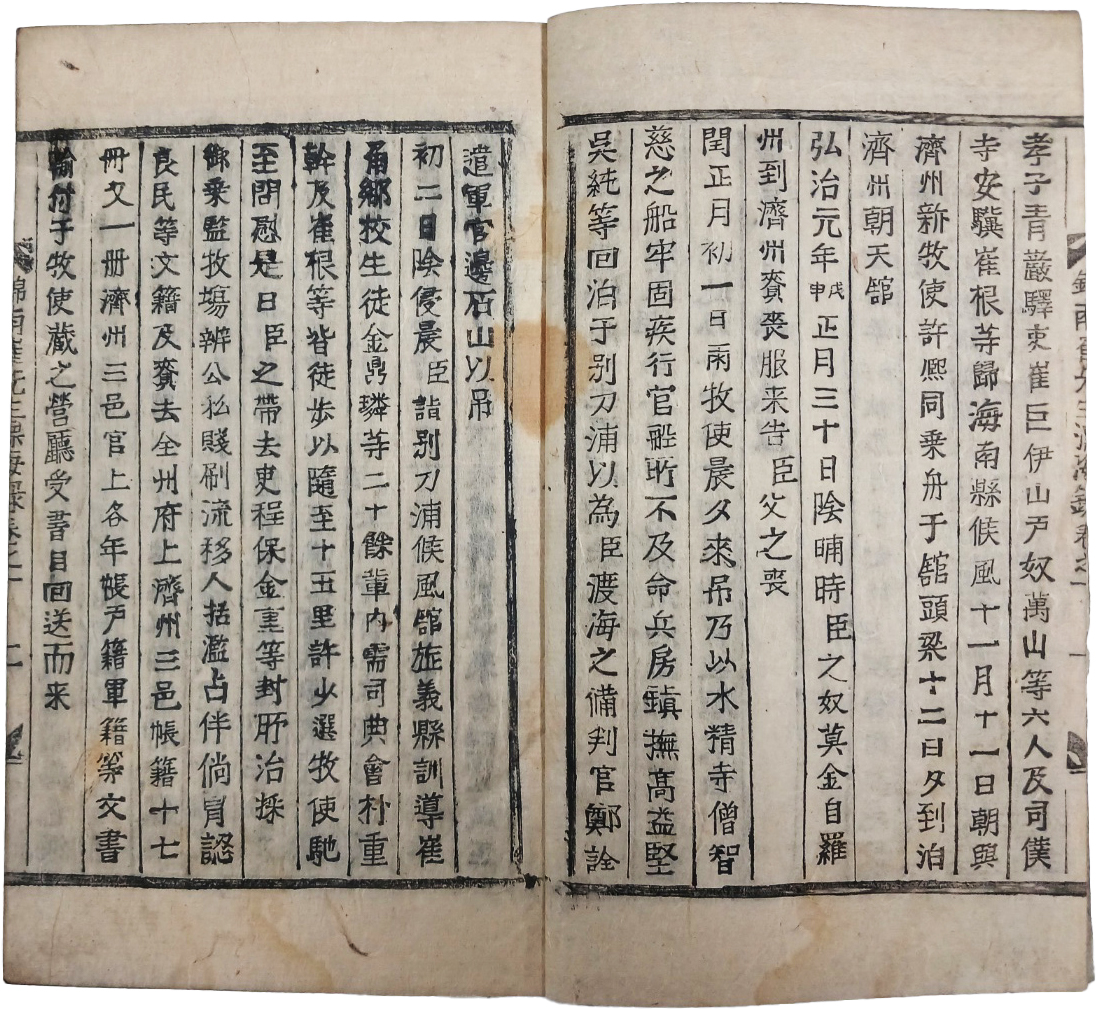 孝子青巖驛吏崔巨伊山戶奴萬山等六人及司僕
寺安驥崔根等歸海南縣候風十一月十一日朝與
濟州新牧使許熙同乘舟于館頭梁十二日夕到泊
濟州朝天館
弘治元年戊申正月三十日陰晡時臣之奴莫金自羅
州到濟州賫喪服来告臣父之喪
閏正月初一日雨牧使晨夕來吊乃以水精寺僧智
慈之船牢固疾行官船所不及命兵房鎮撫高益堅
吳純等回泊于别刀浦以為臣渡海之備判官鄭詮
遣軍官邊石山以吊
初二日陰侵晨臣詣别刀浦候風館旌義縣訓導崔
角鄕校生徒金鼎璘等二十餘軰內需司典會朴重
幹及崔根等皆徒步以隨至十五里許少選牧使馳
至問慰是日臣之帶去吏程保金重等封所治採
御乘監牧塲辨公私賤刷流移人括濫占伴倘冐認
良民等文籍及賫去全州府上濟州三邑帳籍十七
冊文一册濟州三邑官上各年帳戶籍軍籍等文書
輸付于牧使藏之營廳受書目回送而来